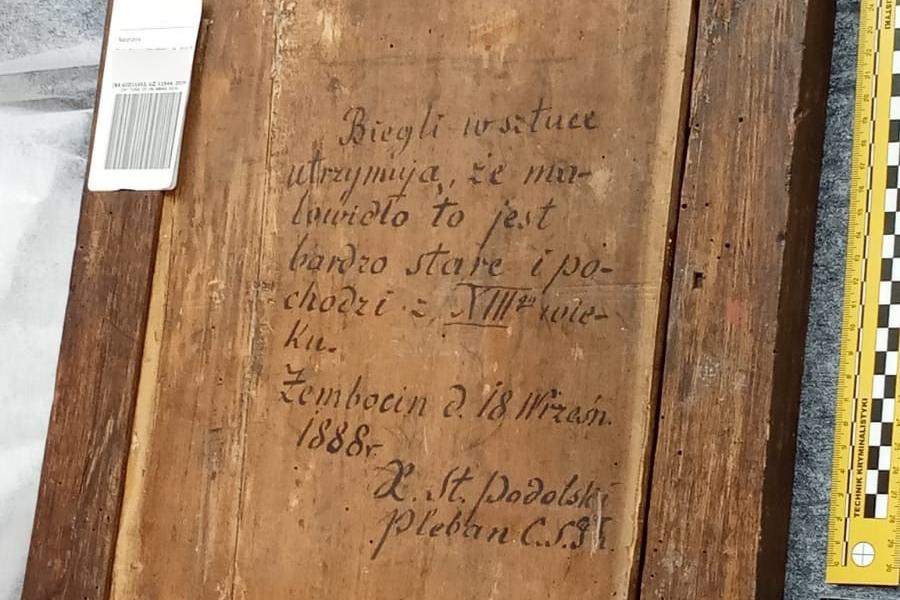 Biegli w sztuce
utrzymują, że ma-
lowidło to jest
bardzo stare i po-
chodzi z XIIIgo wie-
ku.
Żembocin d. 18 Wrześn.
1888r.
X. St. Podolski
Pleban C.S.
TECHNIK KRYMINALISTYKI